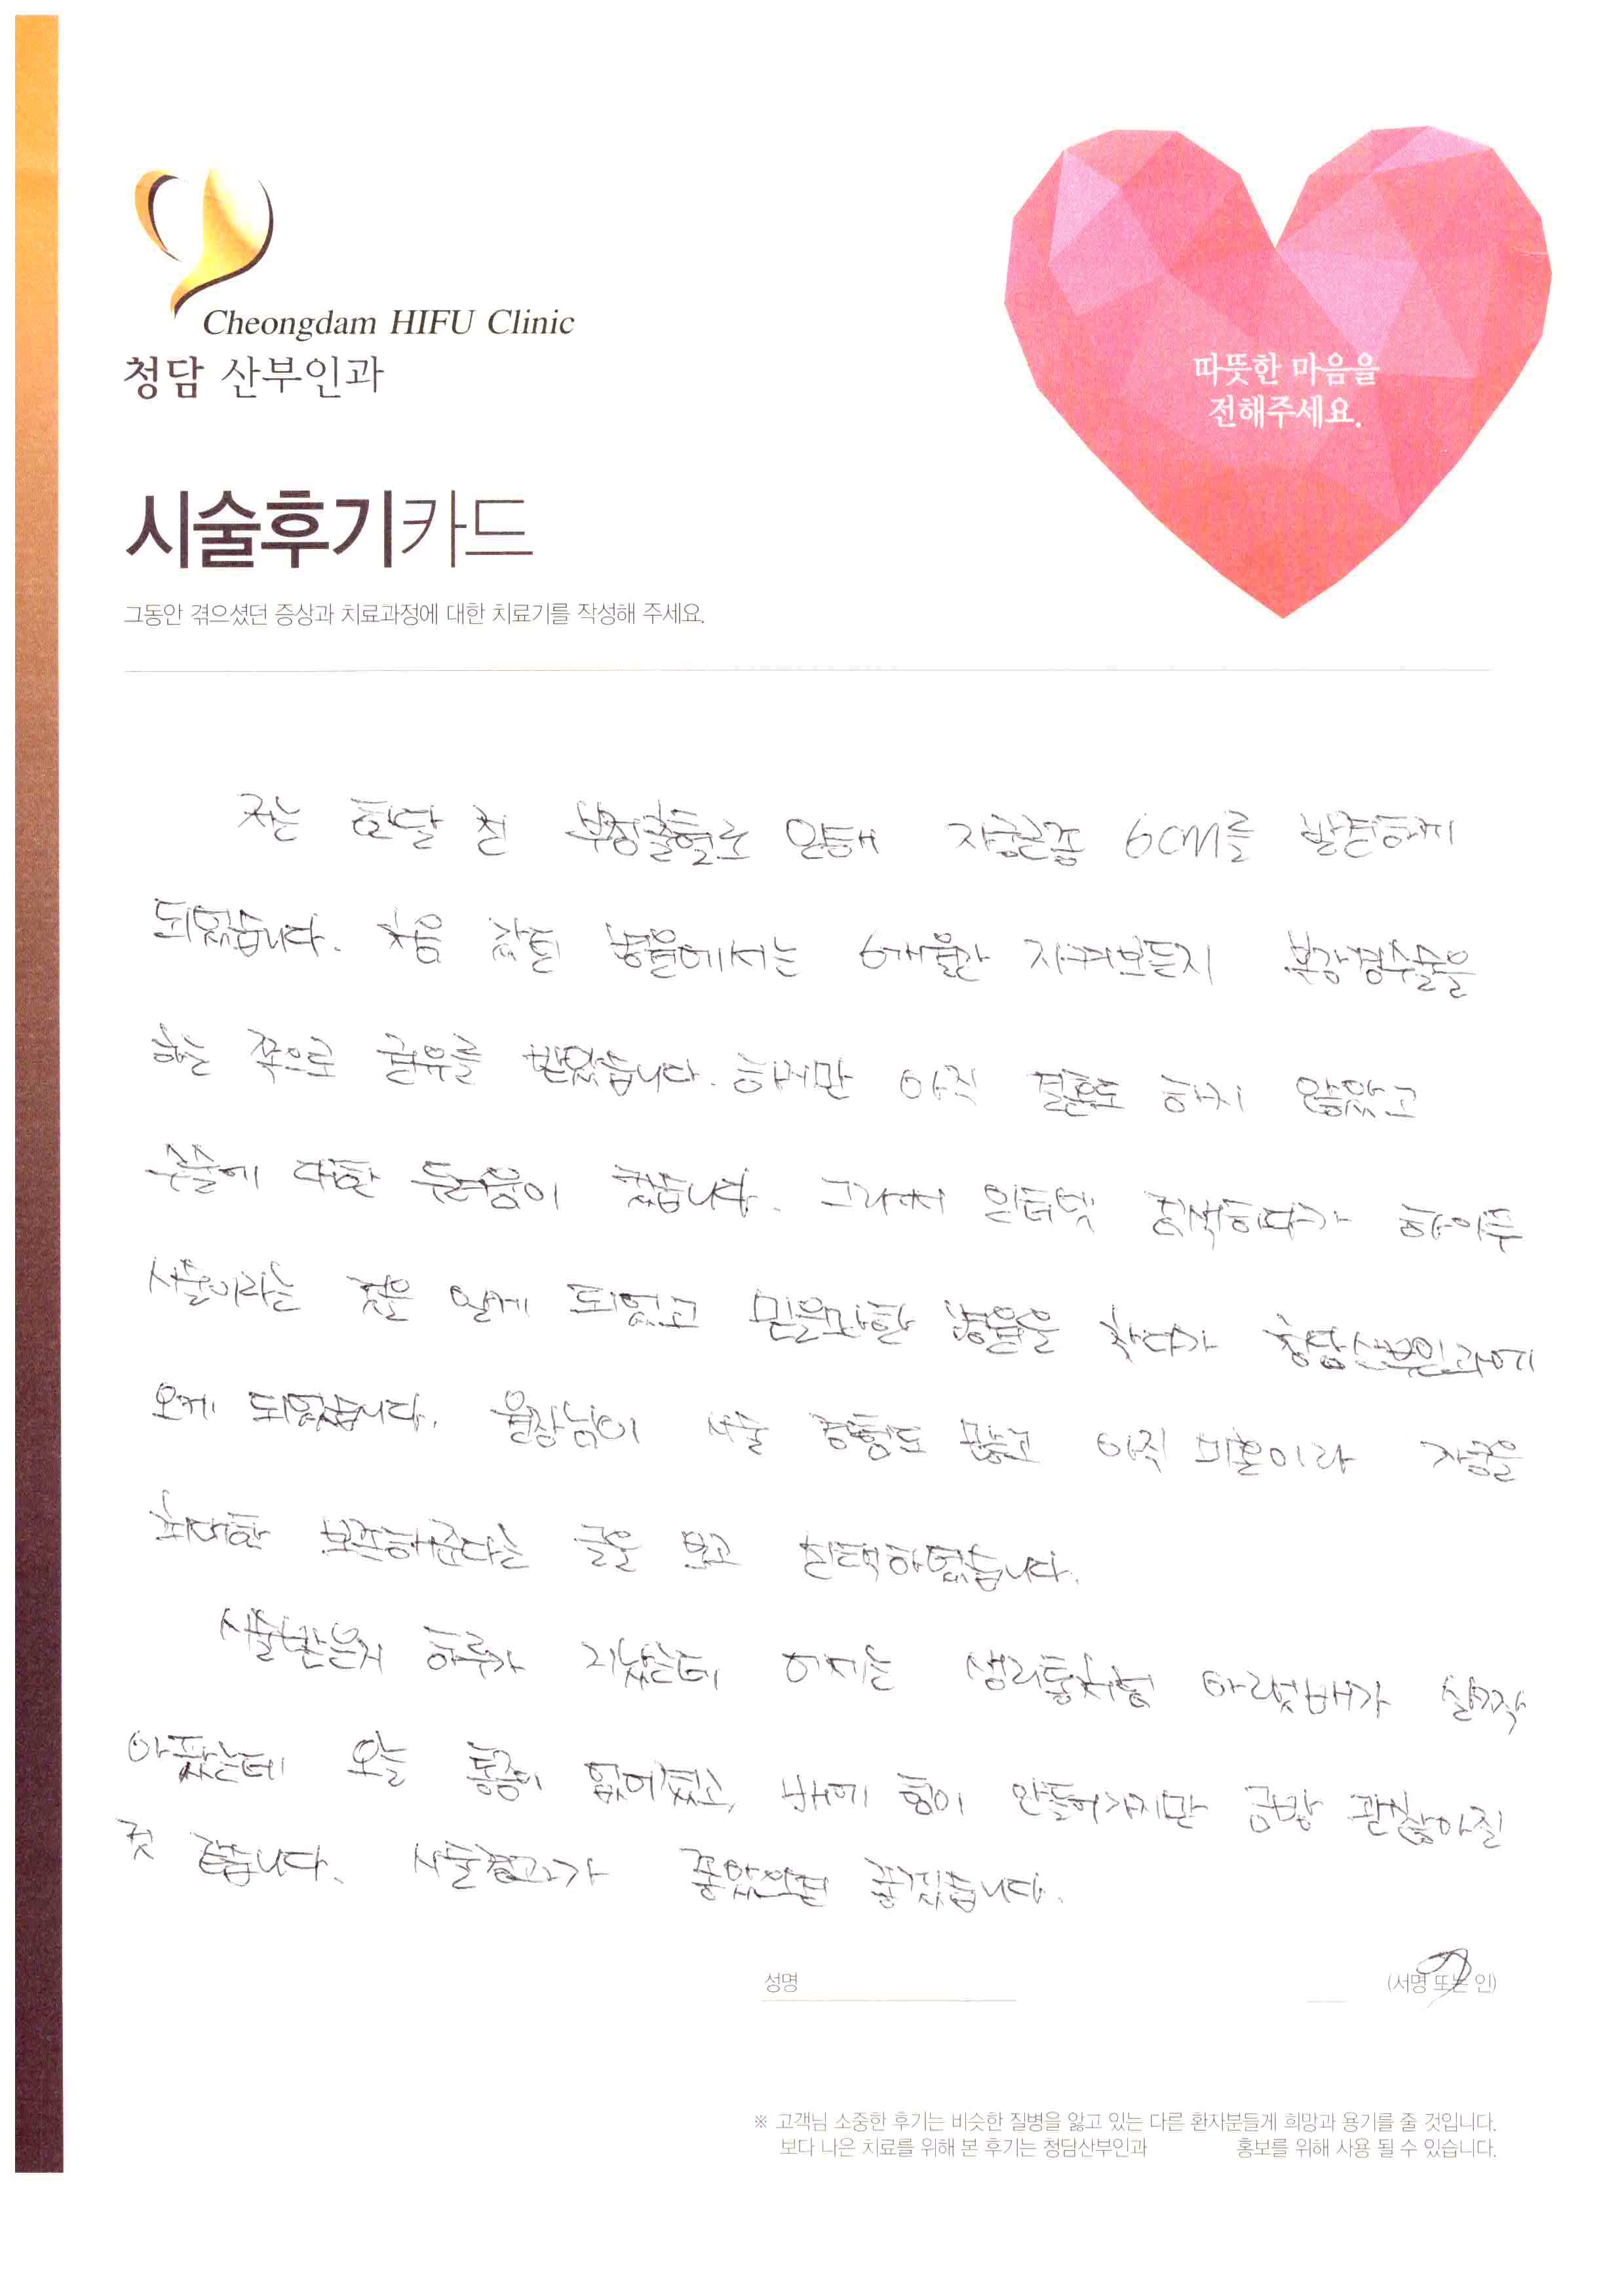 Cheongdam HIFU Clinic
청담 산부인과
따뜻한 마음을
전해주세요.
시술후기카드
그동안 겪으셨던 증상과 치료과정에 대한 치료기를 작성해 주세요.
저는 한달 전 부정출혈로 인해 자궁근종 6CM를 발견하게
되었습니다. 처음 갔던 병원에서는 6개월간 지켜보든지 복강경수술을
하는 쪽으로 권유를 받았습니다. 하지만 아직 결혼도 하지 않았고
수술에 대한 두려움이 컸습니다. 그래서 인터넷 검색하다가 하이푸
시술이라는 것을 알게 되었고 믿을만한 병원을 찾다가 청담산부인과에
오게 되었습니다. 원장님이 시술 경험도 많고 아직 미혼이라 자궁을
최대한 보존해준다는 글을 보고 선택하였습니다.
시술받은지 하루가 지났는데 어제는 생리통처럼 아랫배가 살짝
아팠는데 오늘 통증이 없어졌고, 배에 힘이 안들어가지만 금방 괜찮아질
것 같습니다. 시술결과가 좋았으면 좋겠습니다.
성명 (서명 또는 인)
※ 고객님 소중한 후기는 비슷한 질병을 앓고 있는 다른 환자분들게 희망과 용기를 줄 것입니다.
보다 나은 치료를 위해 본 후기는 청담산부인과 홍보를 위해 사용 될 수 있습니다.